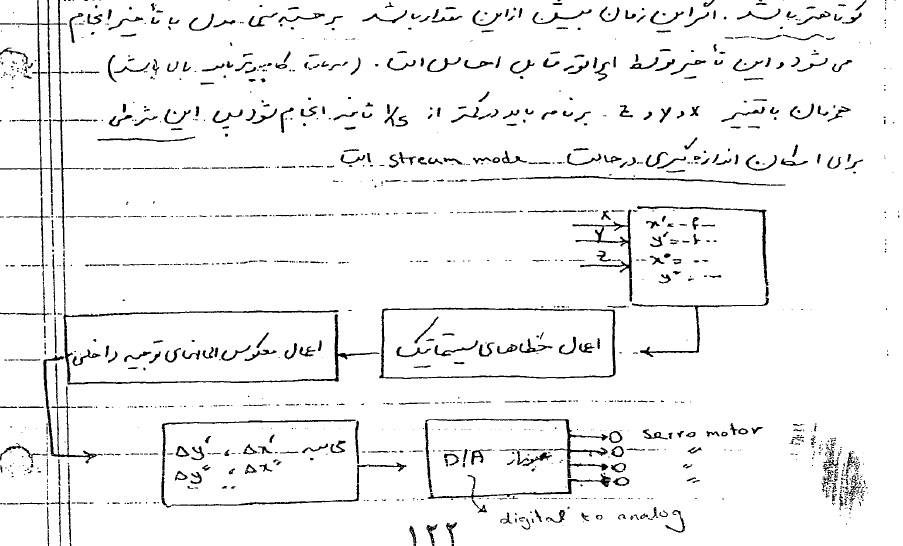 کوتاهتر باشد. اگر این زمان بیش از این مقدار باشد برجسته بینی مدل با تأخیر انجام
می شود و این تأخیر توسط اپراتور قابل احساس است. (سرعت کامپیوتر باید بالا باشد)
همزمان با تغییر x و y و z برنامه باید در کمتر از ثانیه انجام شود پس این شرطی
برای امکان اندازه گیری در حالت stream mode است
X
Y
Z
x' = -f ---
y' = -f ---
x" = ---
y" = ---
اعمال خطاهای سیستماتیک
اعمال معکوس المانهای توجیه داخلی
محاسبه Δx' ، Δy'
Δx" ، Δy"
D/A
servo motor
"
"
digital to analog
۱۲۲